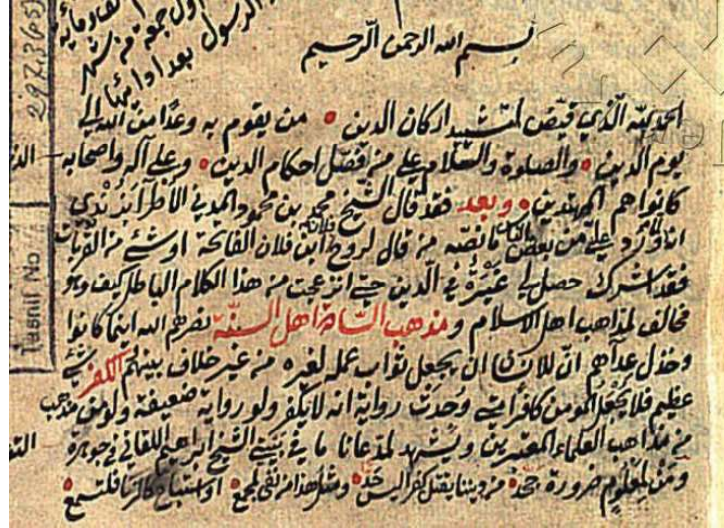 الفاتحة
اول جمعة من شهر
الرسول بعد اداء
297.3
بسم الله الرحمن الرحيم
الحمد لله الذي قيض لتشييد اركان الدين من يقوم به وعدا من الله الى
يوم الدين والصلوة والسلام على من فصل احكام الدين وعلى آله واصحابه
كانوا هم المهتدين وبعد فقد قال الشيخ محمد بن محمود المدني
على من بعض ما نصه من قال لروح فلان ابن فلان الفاتحة او شئ من القربات
فقد اشرك حصل لي غيرة في الدين حتى انزعجت من هذا الكلام الباطل كيف وهو
مخالف لمذاهب اهل الاسلام ومذهب السادة اهل السنة نصرهم الله اينما كانوا
وخذل عداهم ان للانسان ان يجعل ثواب عمله لغيره من غير خلاف بينهم الكفر شئ
عظيم فلا يجعل المومن كافرا متى وجدت رواية انه لا يكفر ولو رواية ضعيفة ولو من مذهب
من مذاهب العلماء المعتبرين ويشهد لمدعانا ما في بيتي الشيخ ابراهيم اللقاني في جوهرة
ومن لمعلوم ضرورة جحد من ديننا يقتل كفرا ليس حد ومثل هذا من نفى لمجمع او استباح كالزنا فلتسمع
Tasnif No